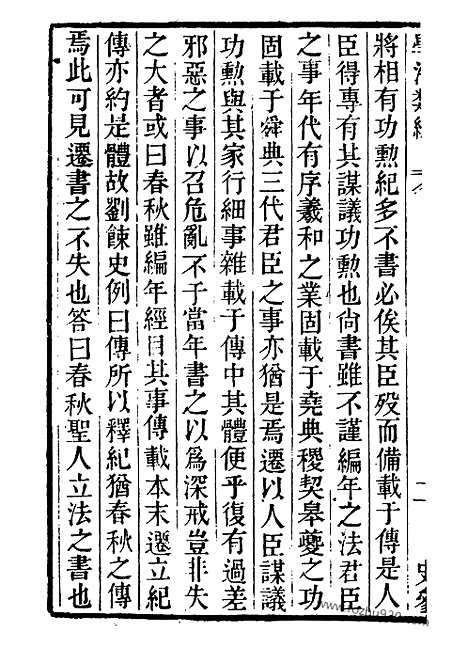 將相有功勲紀多不書必俟其臣歿而備載于傳是人
臣得專有其謀議功勲也尙書雖不謹編年之法君臣
之事年代有序羲和之業固載于堯典稷契皋夔之功
固載于舜典三代君臣之事亦猶是焉遷以人臣謀議
功勲與其家行細事雜載于傳中其體便乎復有過差
邪惡之事以召危亂不于當年書之以爲深戒豈非失
之大者或曰春秋雖編年經目其事傳載本末遷立紀
傳亦約是體故劉餗史例曰傳所以釋紀猶春秋之傳
焉此可見遷書之不失也答曰春秋聖人立法之書也